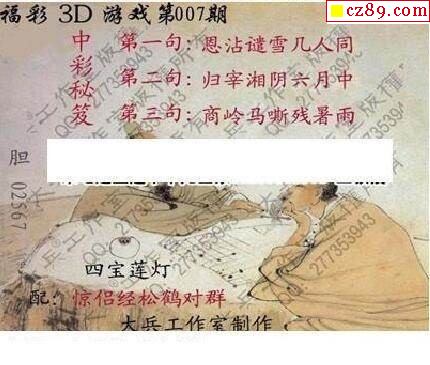 福彩 3D 游戏第007期
cz89.com
中彩秘笈
第一句：恩沾谴雪几人同
第二句：归宰湘阴六月中
第三句：商岭马嘶残暑雨
胆 02367
四宝莲灯
配：惊侣经松鹤对群
大兵工作室制作
大兵工作室版權所有
QQ:277353943